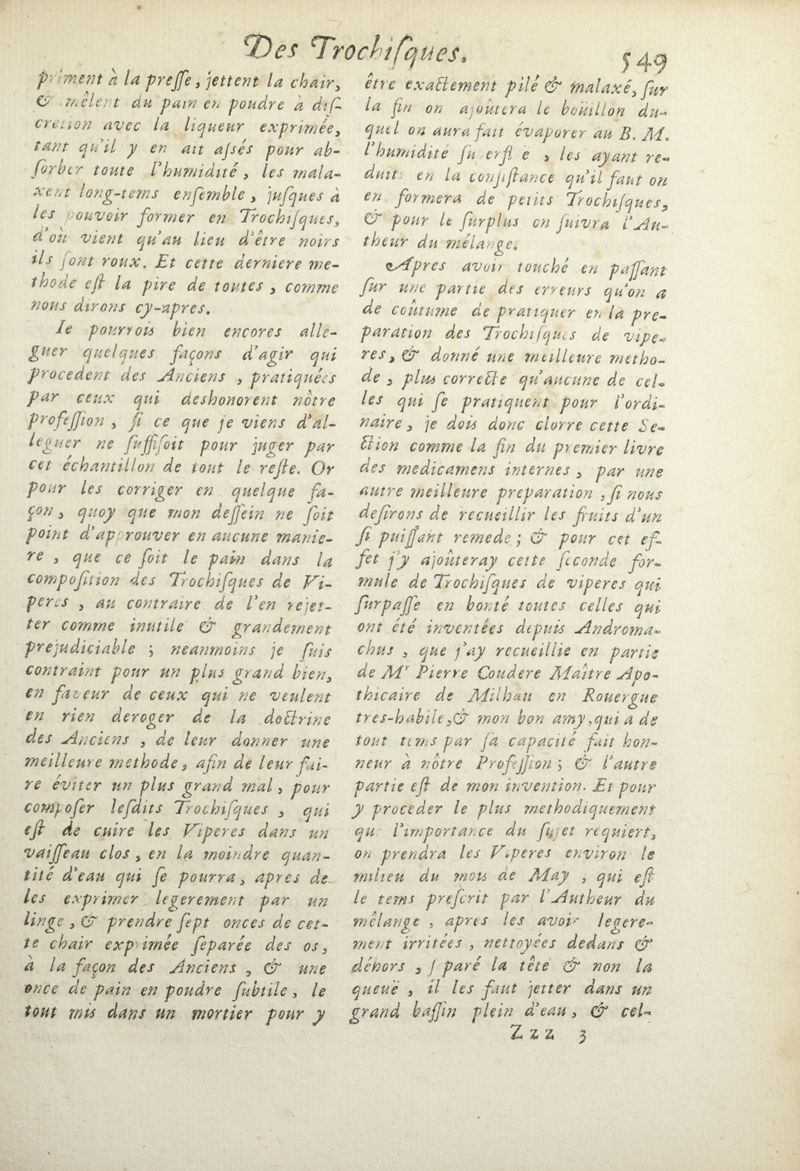 Des Trochiſques. 549
priment à la preſſe, jettent la chair,
& mêlent du pain en poudre à diſ-
cretion avec la liqueur exprimée,
tant qu'il y en ait aſsés pour ab-
ſorber toute l'humidité, les mala-
xent long-tems enſemble, juſques à
les pouvoir former en Trochiſques,
d'où vient qu'au lieu d'être noirs
ils ſont roux. Et cette derniere me-
thode eſt la pire de toutes, comme
nous dirons cy-apres.
Ie pourrois bien encores alle-
guer quelques façons d'agir qui
procedent des Anciens, pratiquées
par ceux qui deshonorent nôtre
profeſſion, ſi ce que je viens d'al-
leguer ne ſuffiſoit pour juger par
cet échantillon de tout le reſte. Or
pour les corriger en quelque fa-
çon, quoy que mon deſſein ne ſoit
point d'approuver en aucune manie-
re, que ce ſoit le pain dans la
compoſition des Trochiſques de Vi-
peres, au contraire de l'en rejet-
ter comme inutile & grandement
prejudiciable; neanmoins je ſuis
contraint pour un plus grand bien,
en faveur de ceux qui ne veulent
en rien deroger de la doctrine
des Anciens, de leur donner une
meilleure methode, afin de leur fai-
re éviter un plus grand mal, pour
compoſer leſdits Trochiſques, qui
eſt de cuire les Viperes dans un
vaiſſeau clos, en la moindre quan-
tité d'eau qui ſe pourra, apres de
les exprimer legerement par un
linge, & prendre ſept onces de cet-
te chair exprimée ſeparée des os,
à la façon des Anciens, & une
once de pain en poudre ſubtile, le
tout mis dans un mortier pour y
être exactement pilé & malaxé, ſur
la fin on ajoûtera le boüillon du-
quel on aura fait évaporer au B. M.
l'humidité ſuperfluë, les ayant re-
duits en la conſiſtance qu'il faut on
en formera de petits Trochiſques,
& pour le ſurplus on ſuivra l'Au-
theur du mélange.
Apres avoir touché en paſſant
ſur une partie des erreurs qu'on a
de coûtume de pratiquer en la pre-
paration des Trochiſques de vipe-
res, & donné une meilleure metho-
de, plus correcte qu'aucune de cel-
les qui ſe pratiquent pour l'ordi-
naire, je dois donc clorre cette Se-
ction comme la fin du premier livre
des medicamens internes, par une
autre meilleure preparation, ſi nous
deſirons de recueillir les fruits d'un
ſi puiſſant remede; & pour cet ef-
fet j'y ajoûteray cette ſeconde for-
mule de Trochiſques de viperes qui
ſurpaſſe en bonté toutes celles qui
ont été inventées depuis Androma-
chus, que j'ay recueillie en partie
de Mr Pierre Coudere Maître Apo-
thicaire de Milhau en Rouergue
tres-habile, & mon bon amy, qui a de
tout tems par ſa capacité fait hon-
neur à nôtre Profeſſion; & l'autre
partie eſt de mon invention. Et pour
y proceder le plus methodiquement
que l'importance du ſujet requiert,
on prendra les Viperes environ le
milieu du mois de May, qui eſt
le tems preſcrit par l'Autheur du
mélange, apres les avoir legere-
ment irritées, nettoyées dedans &
déhors, ſeparé la tête & non la
queuë, il les faut jetter dans un
grand baſſin plein d'eau, & cel-
Zzz 3